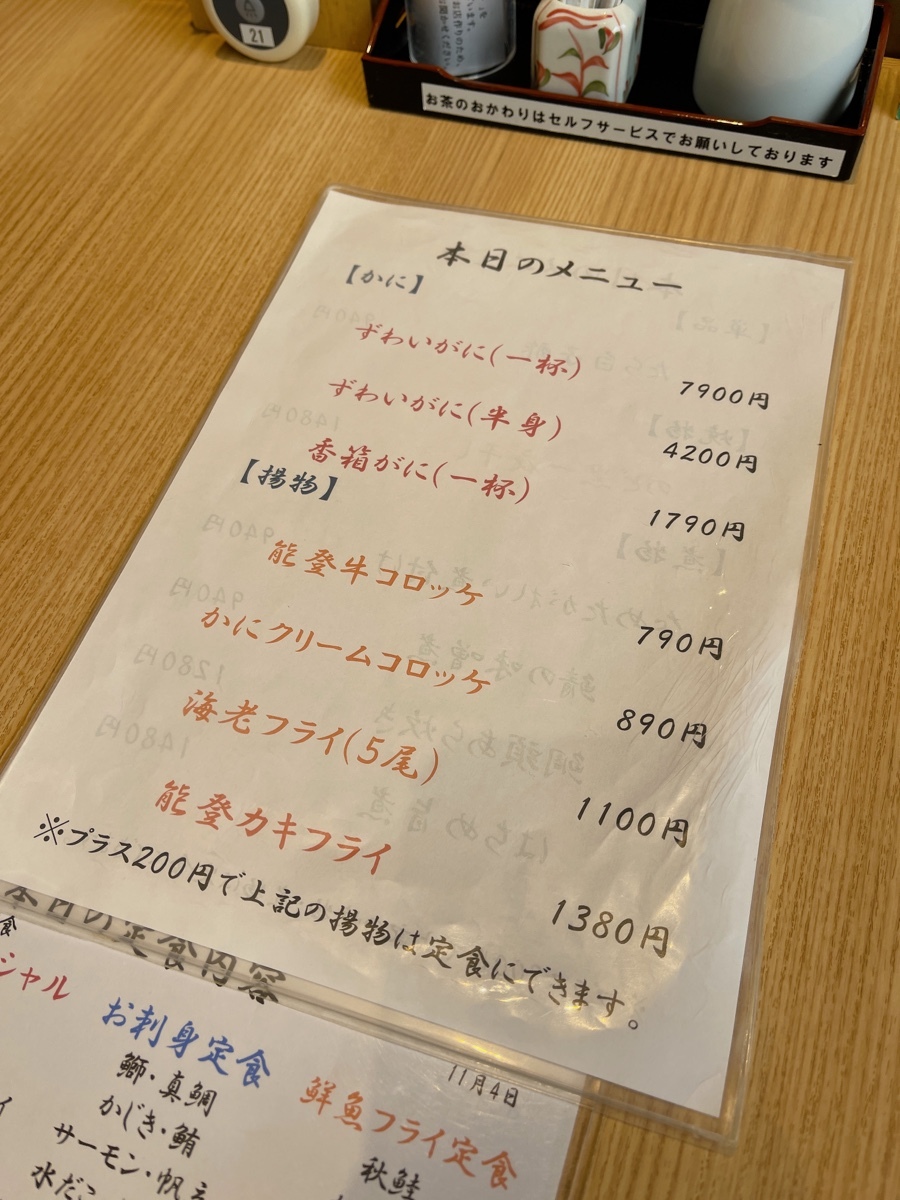 21
います。
お店作りのため、
お聞かせください。
お茶のおかわりはセルフサービスでお願いしております
本日のメニュー
【かに】
ずわいがに(一杯) 7900円
ずわいがに(半身) 4200円
香箱がに(一杯) 1790円
【揚物】
能登牛コロッケ 790円
かにクリームコロッケ 890円
海老フライ(5尾) 1100円
能登カキフライ 1380円
※プラス200円で上記の揚物は定食にできます。
本日の定食内容
11月4日
食
シャル
お刺身定食
鰤・真鯛
かじき・鮪
サーモン・帆立
水だこ
鮮魚フライ定食
秋鮭